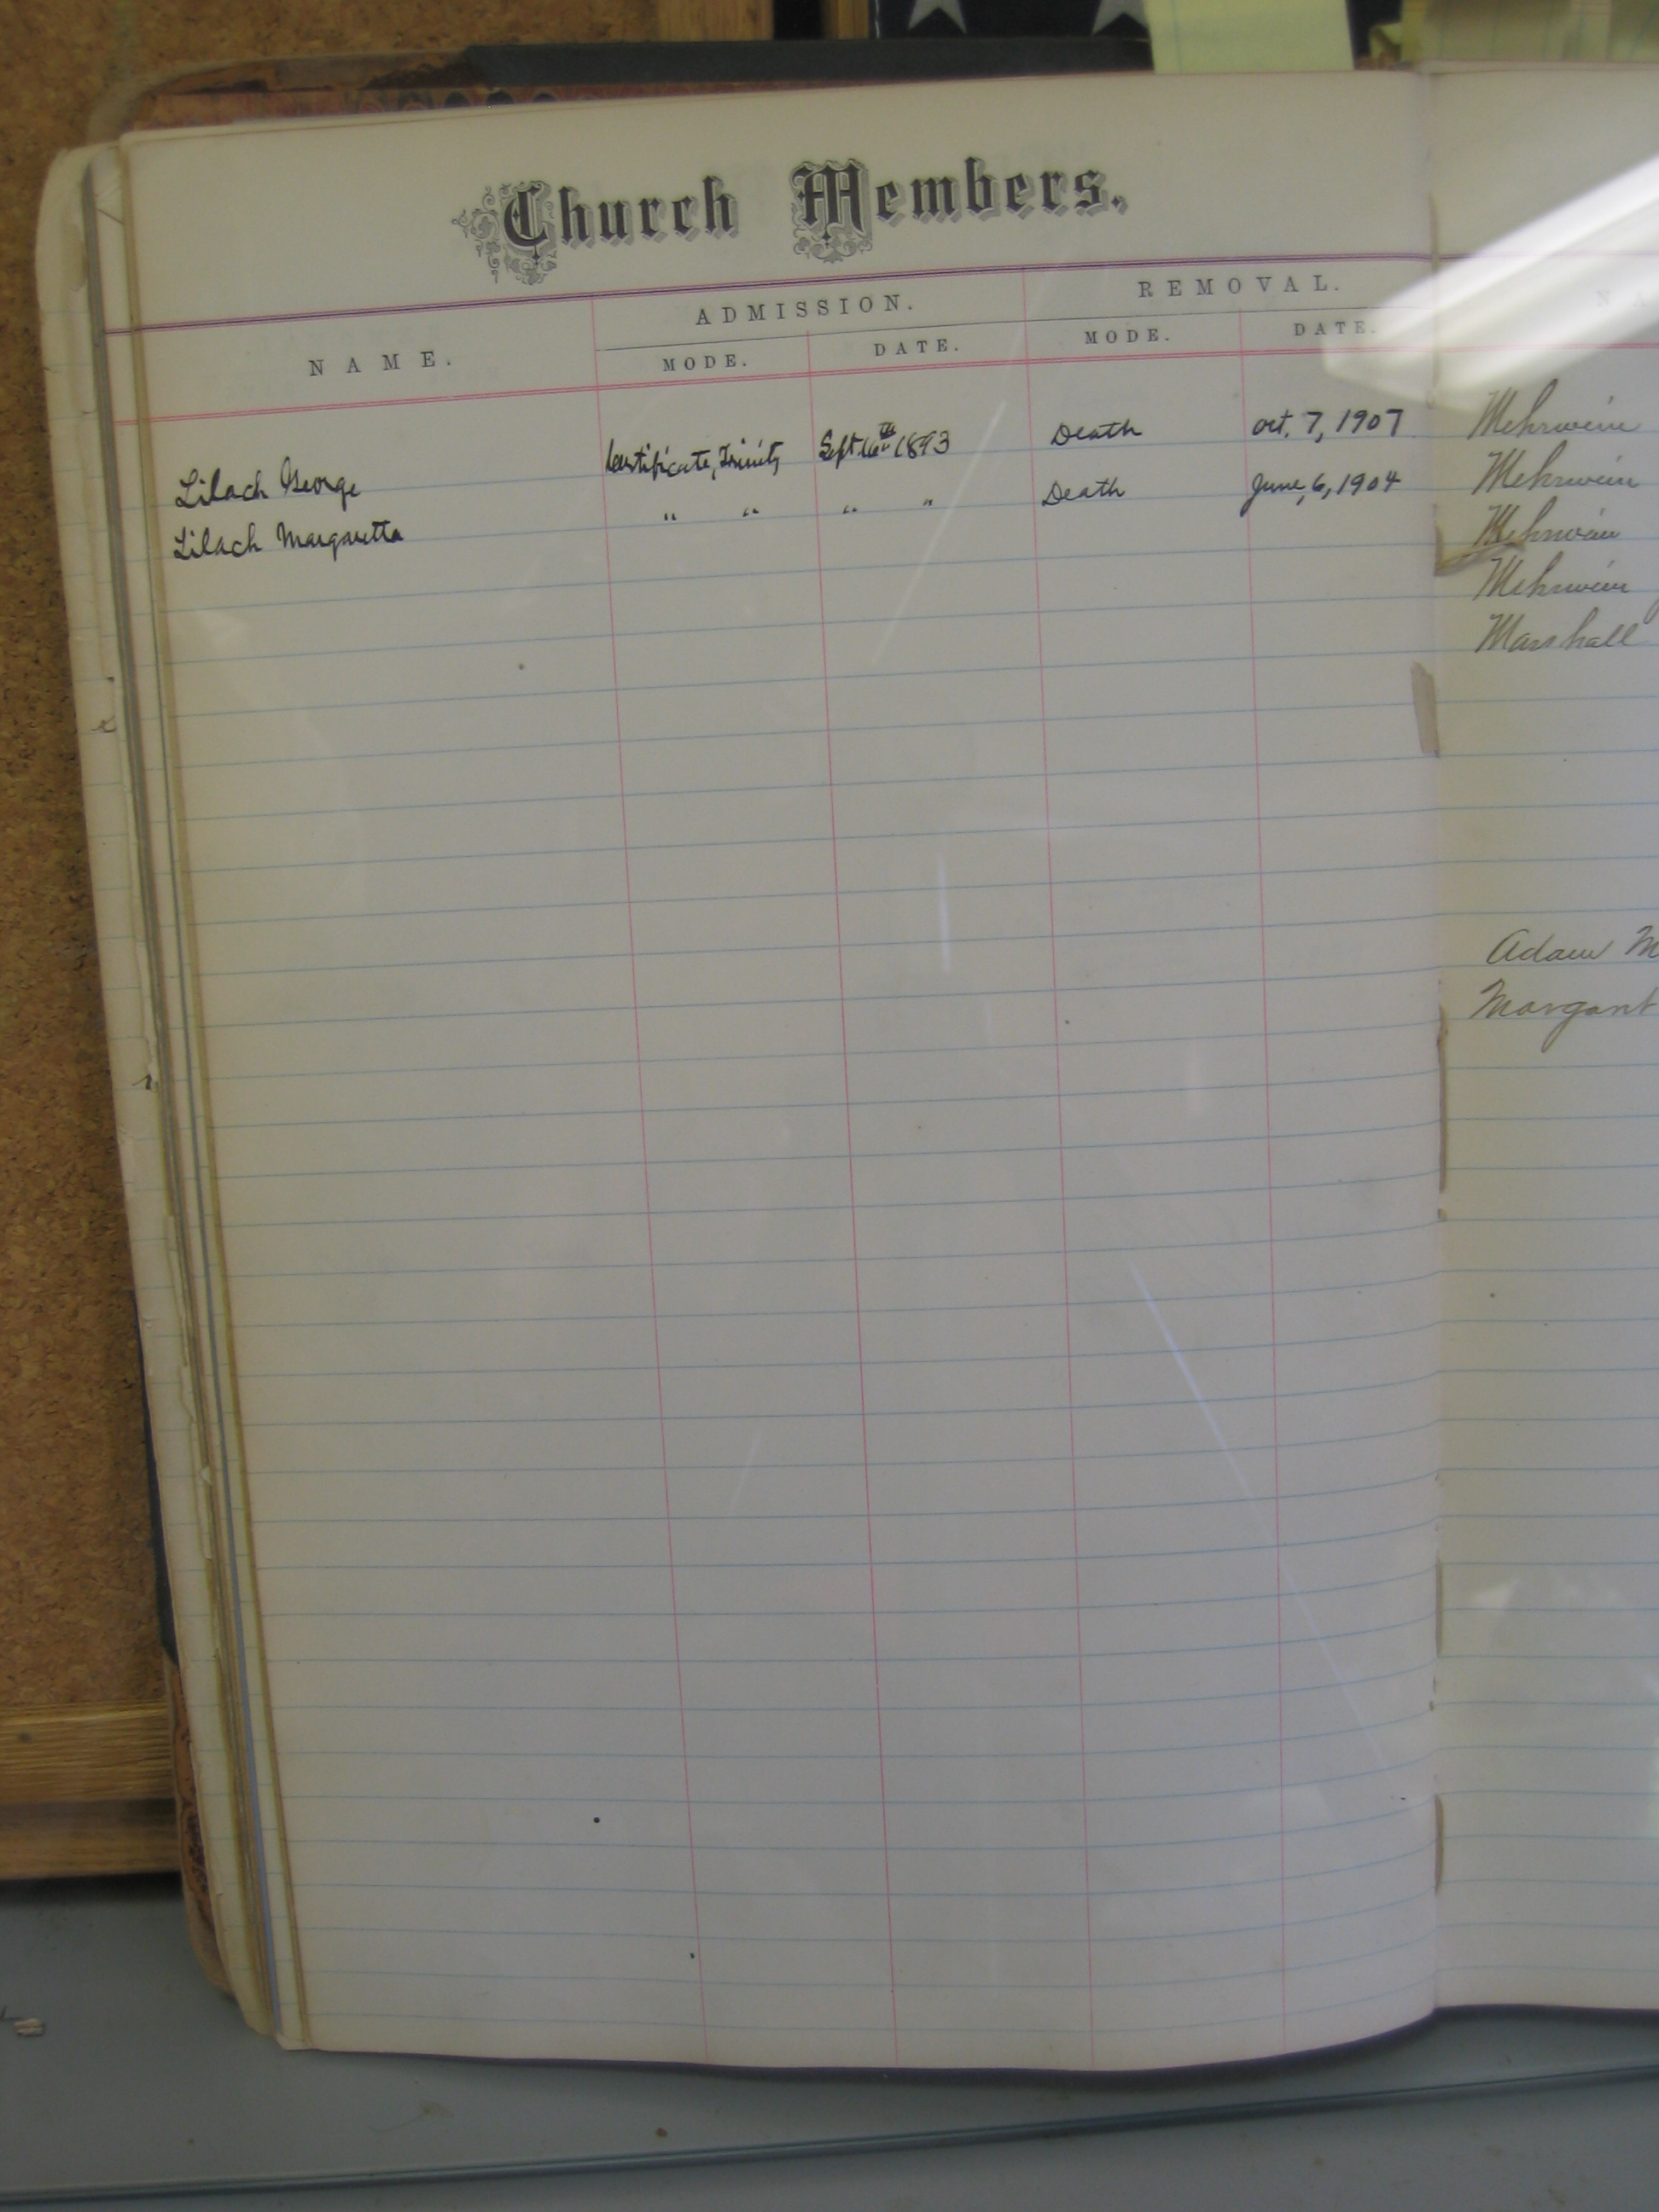 Church Members.
NAME. ADMISSION. REMOVAL.
MODE. DATE. MODE. DATE.
Lilach George Certificate, Trinity Sept 16th 1893 Death Oct. 7, 1907
Lilach Margaretta " " " " Death June, 6, 1904
NA
Mehrwein
Mehrwein
Mehrwein
Mehrwein
Marshall
Adam M
Margaret